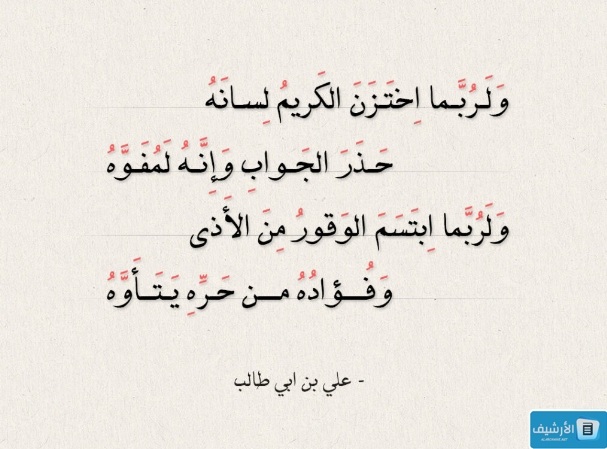 وَلَرُبَّـما اِختَـزَنَ الكَريمُ لِسـانَهُ
حَـذَرَ الجَـوابِ وَإِنَّـهُ لَمُفَـوَّهُ
وَلَرُبَّما اِبتَسَمَ الوَقورُ مِنَ الأَذى
وَفُـــؤادُهُ مــن حَـرِّهِ يَـتَــأَوَّهُ
- علي بن ابي طالب
الأرشيف